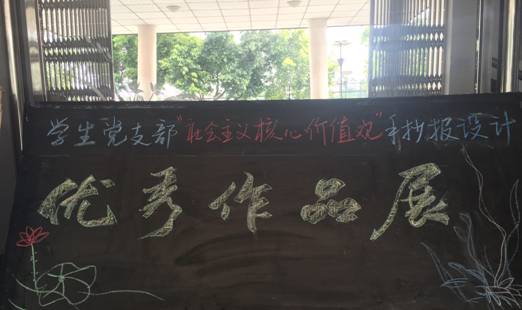 学生党支部"社会主义核心价值观"手抄报设计
优秀作品展